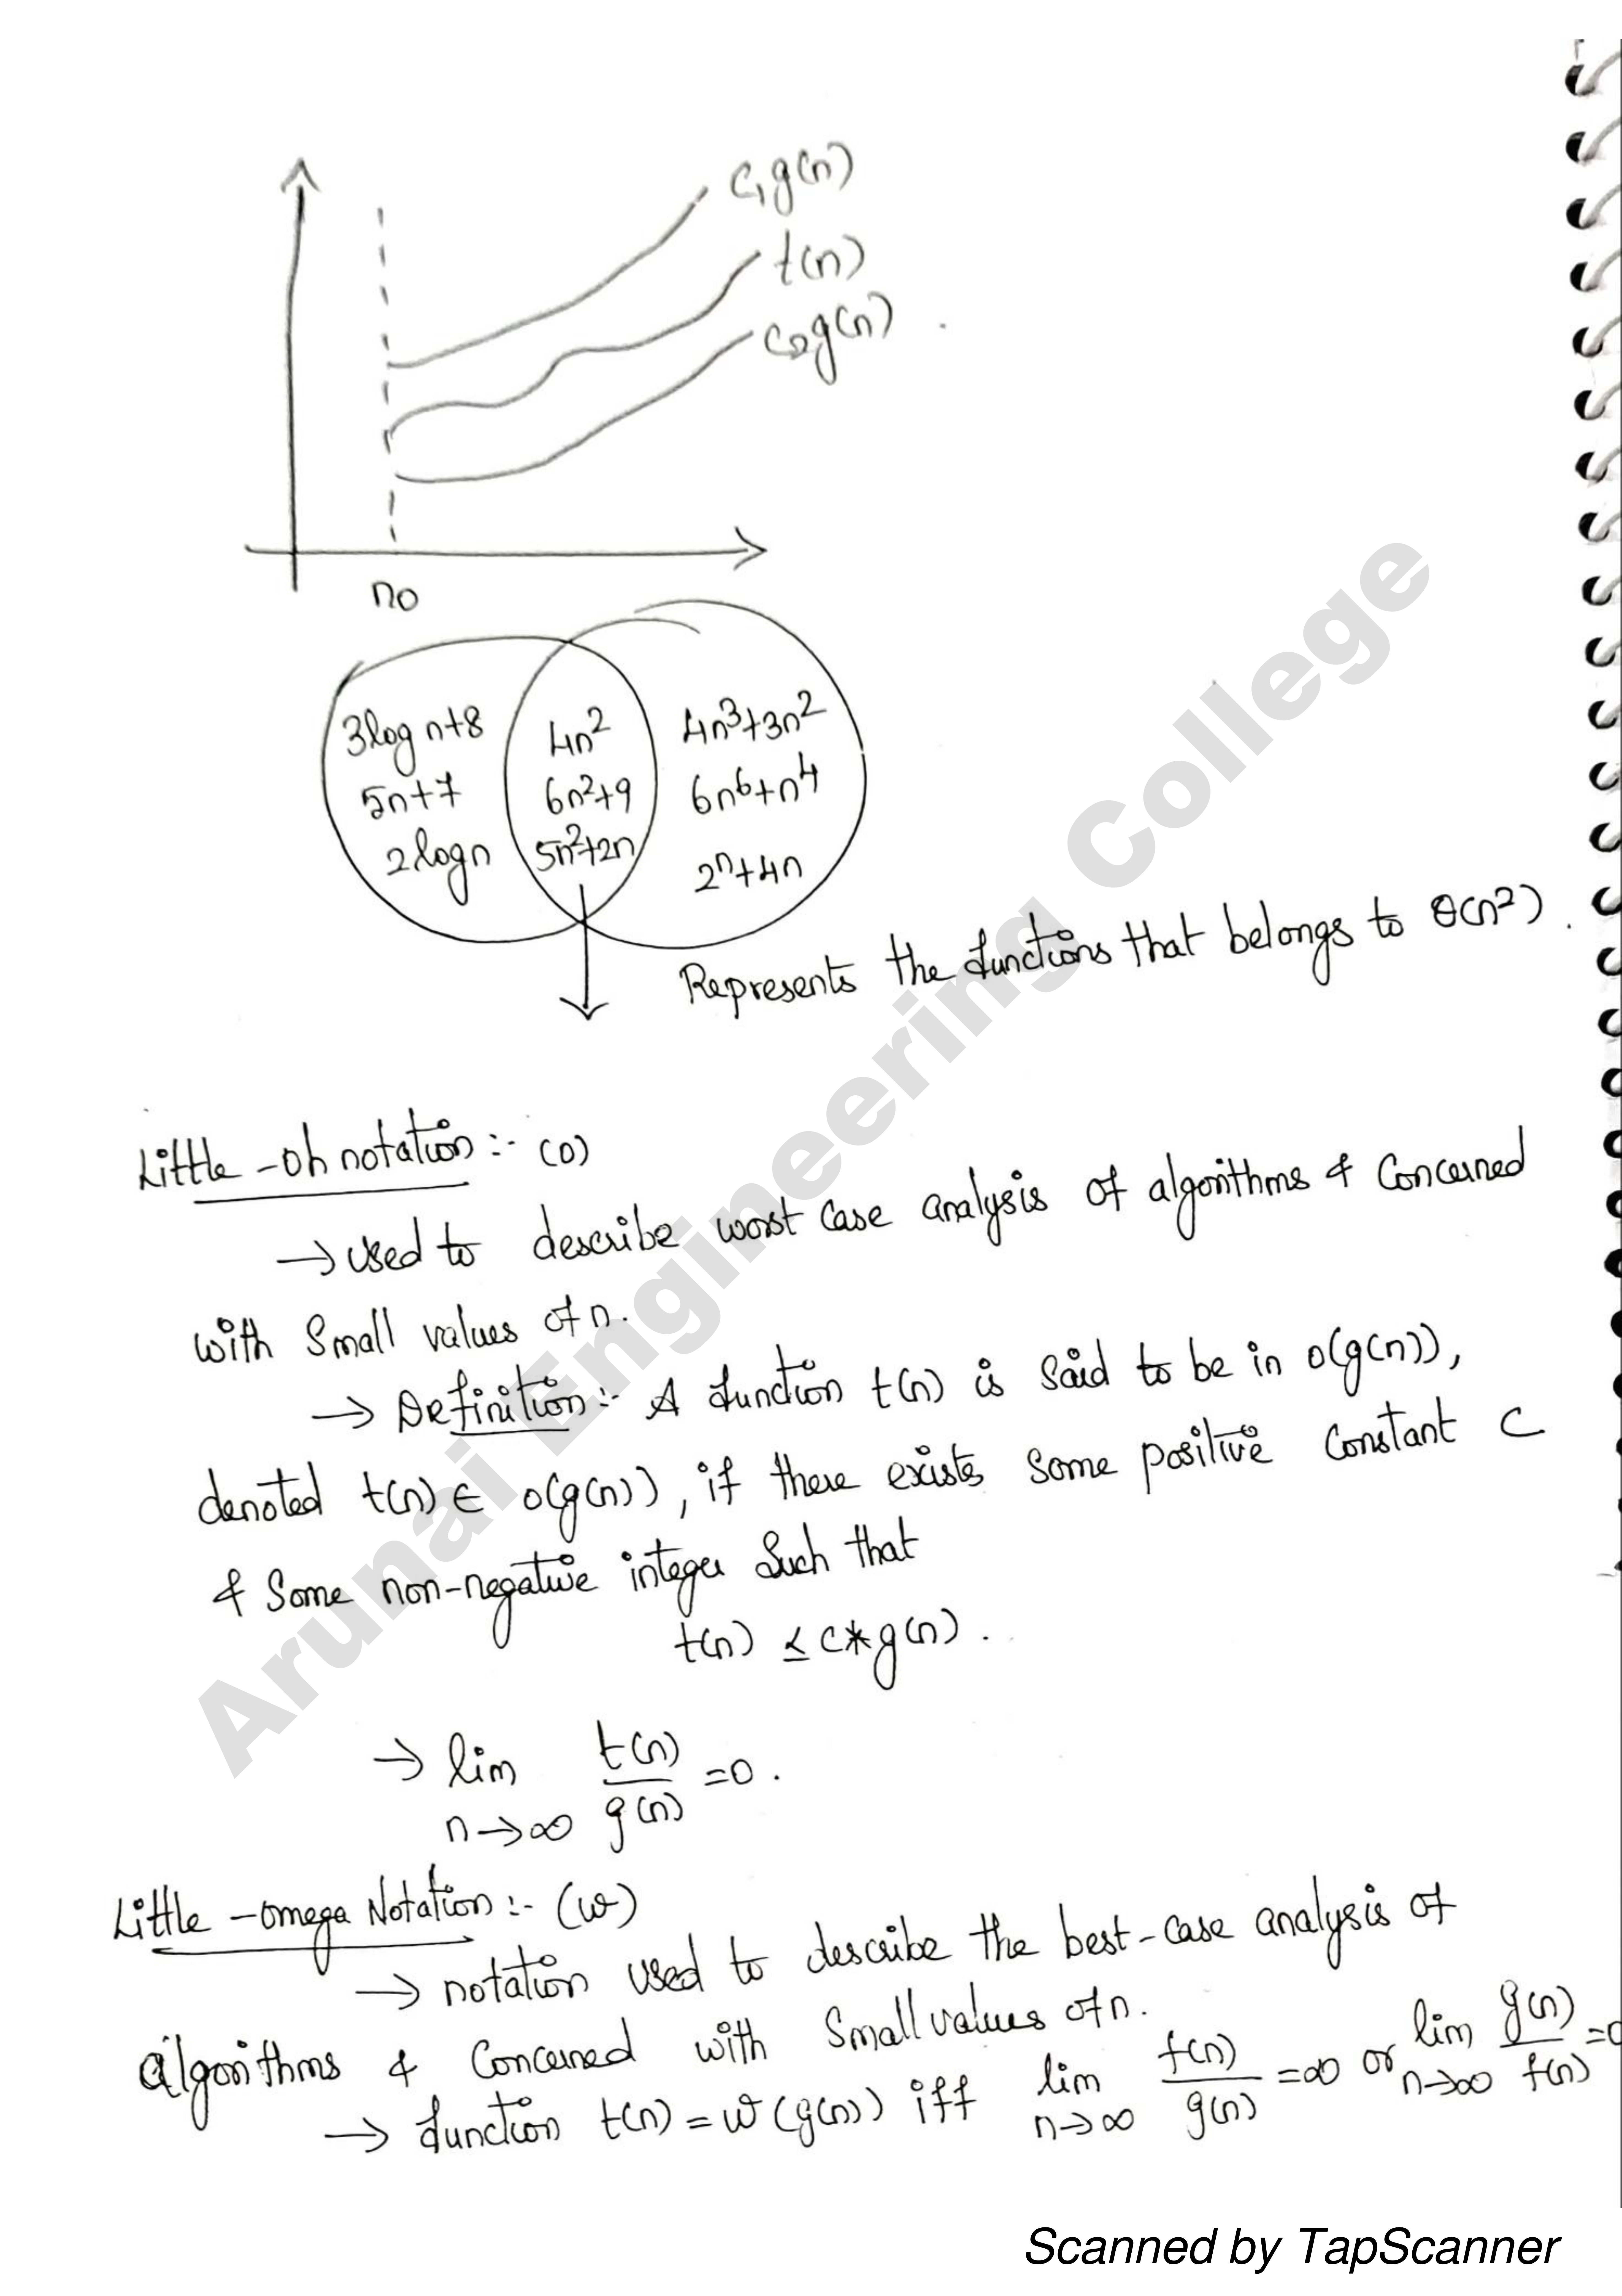 c₁g(n)
t(n)
c₂g(n)
n₀
3log n+8 4n² 4n³+3n²
5n+7 6n²+9 6n⁶+n⁴
2logn 5n²+2n 2ⁿ+4n
Represents the functions that belongs to θ(n²).
Little-oh notation :- (o)
→ used to describe worst case analysis of algorithms & concerned
with small values of n.
→ Definition :- A function t(n) is said to be in o(g(n)),
denoted t(n) ∈ o(g(n)), if there exists some positive constant c
& some non-negative integer such that
t(n) ≤ c*g(n).
→ lim n→∞ t(n)/g(n) = 0.
Little-omega Notation :- (ω)
→ notation used to describe the best-case analysis of
algorithms & concerned with small values of n.
→ function t(n) = ω(g(n)) iff lim n→∞ t(n)/g(n) = ∞ or lim n→∞ g(n)/t(n) = 0
Arunai Engineering College
Scanned by TapScanner